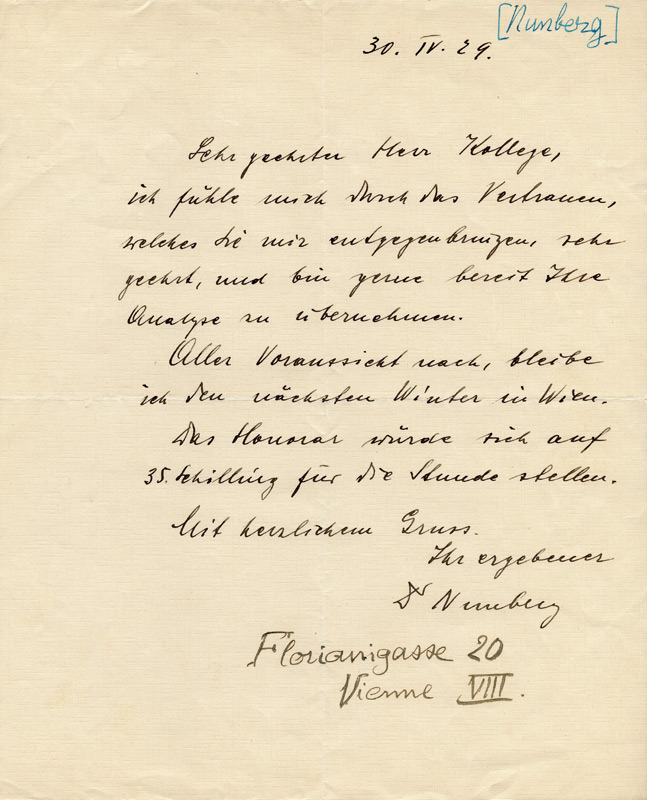 [Nunberg]
30. IV. 29.
Sehr geehrter Herr Kollege,
ich fühle mich durch das Vertrauen,
welches Sie mir entgegenbringen, sehr
geehrt, und bin gerne bereit Ihre
Analyse zu übernehmen.
Aller Voraussicht nach, bleibe
ich den nächsten Winter in Wien.
Das Honorar würde sich auf
35. Schilling für die Stunde stellen.
Mit herzlichem Gruss.
Ihr ergebener
Dr Nunberg
Florianigasse 20
Vienne VIII.